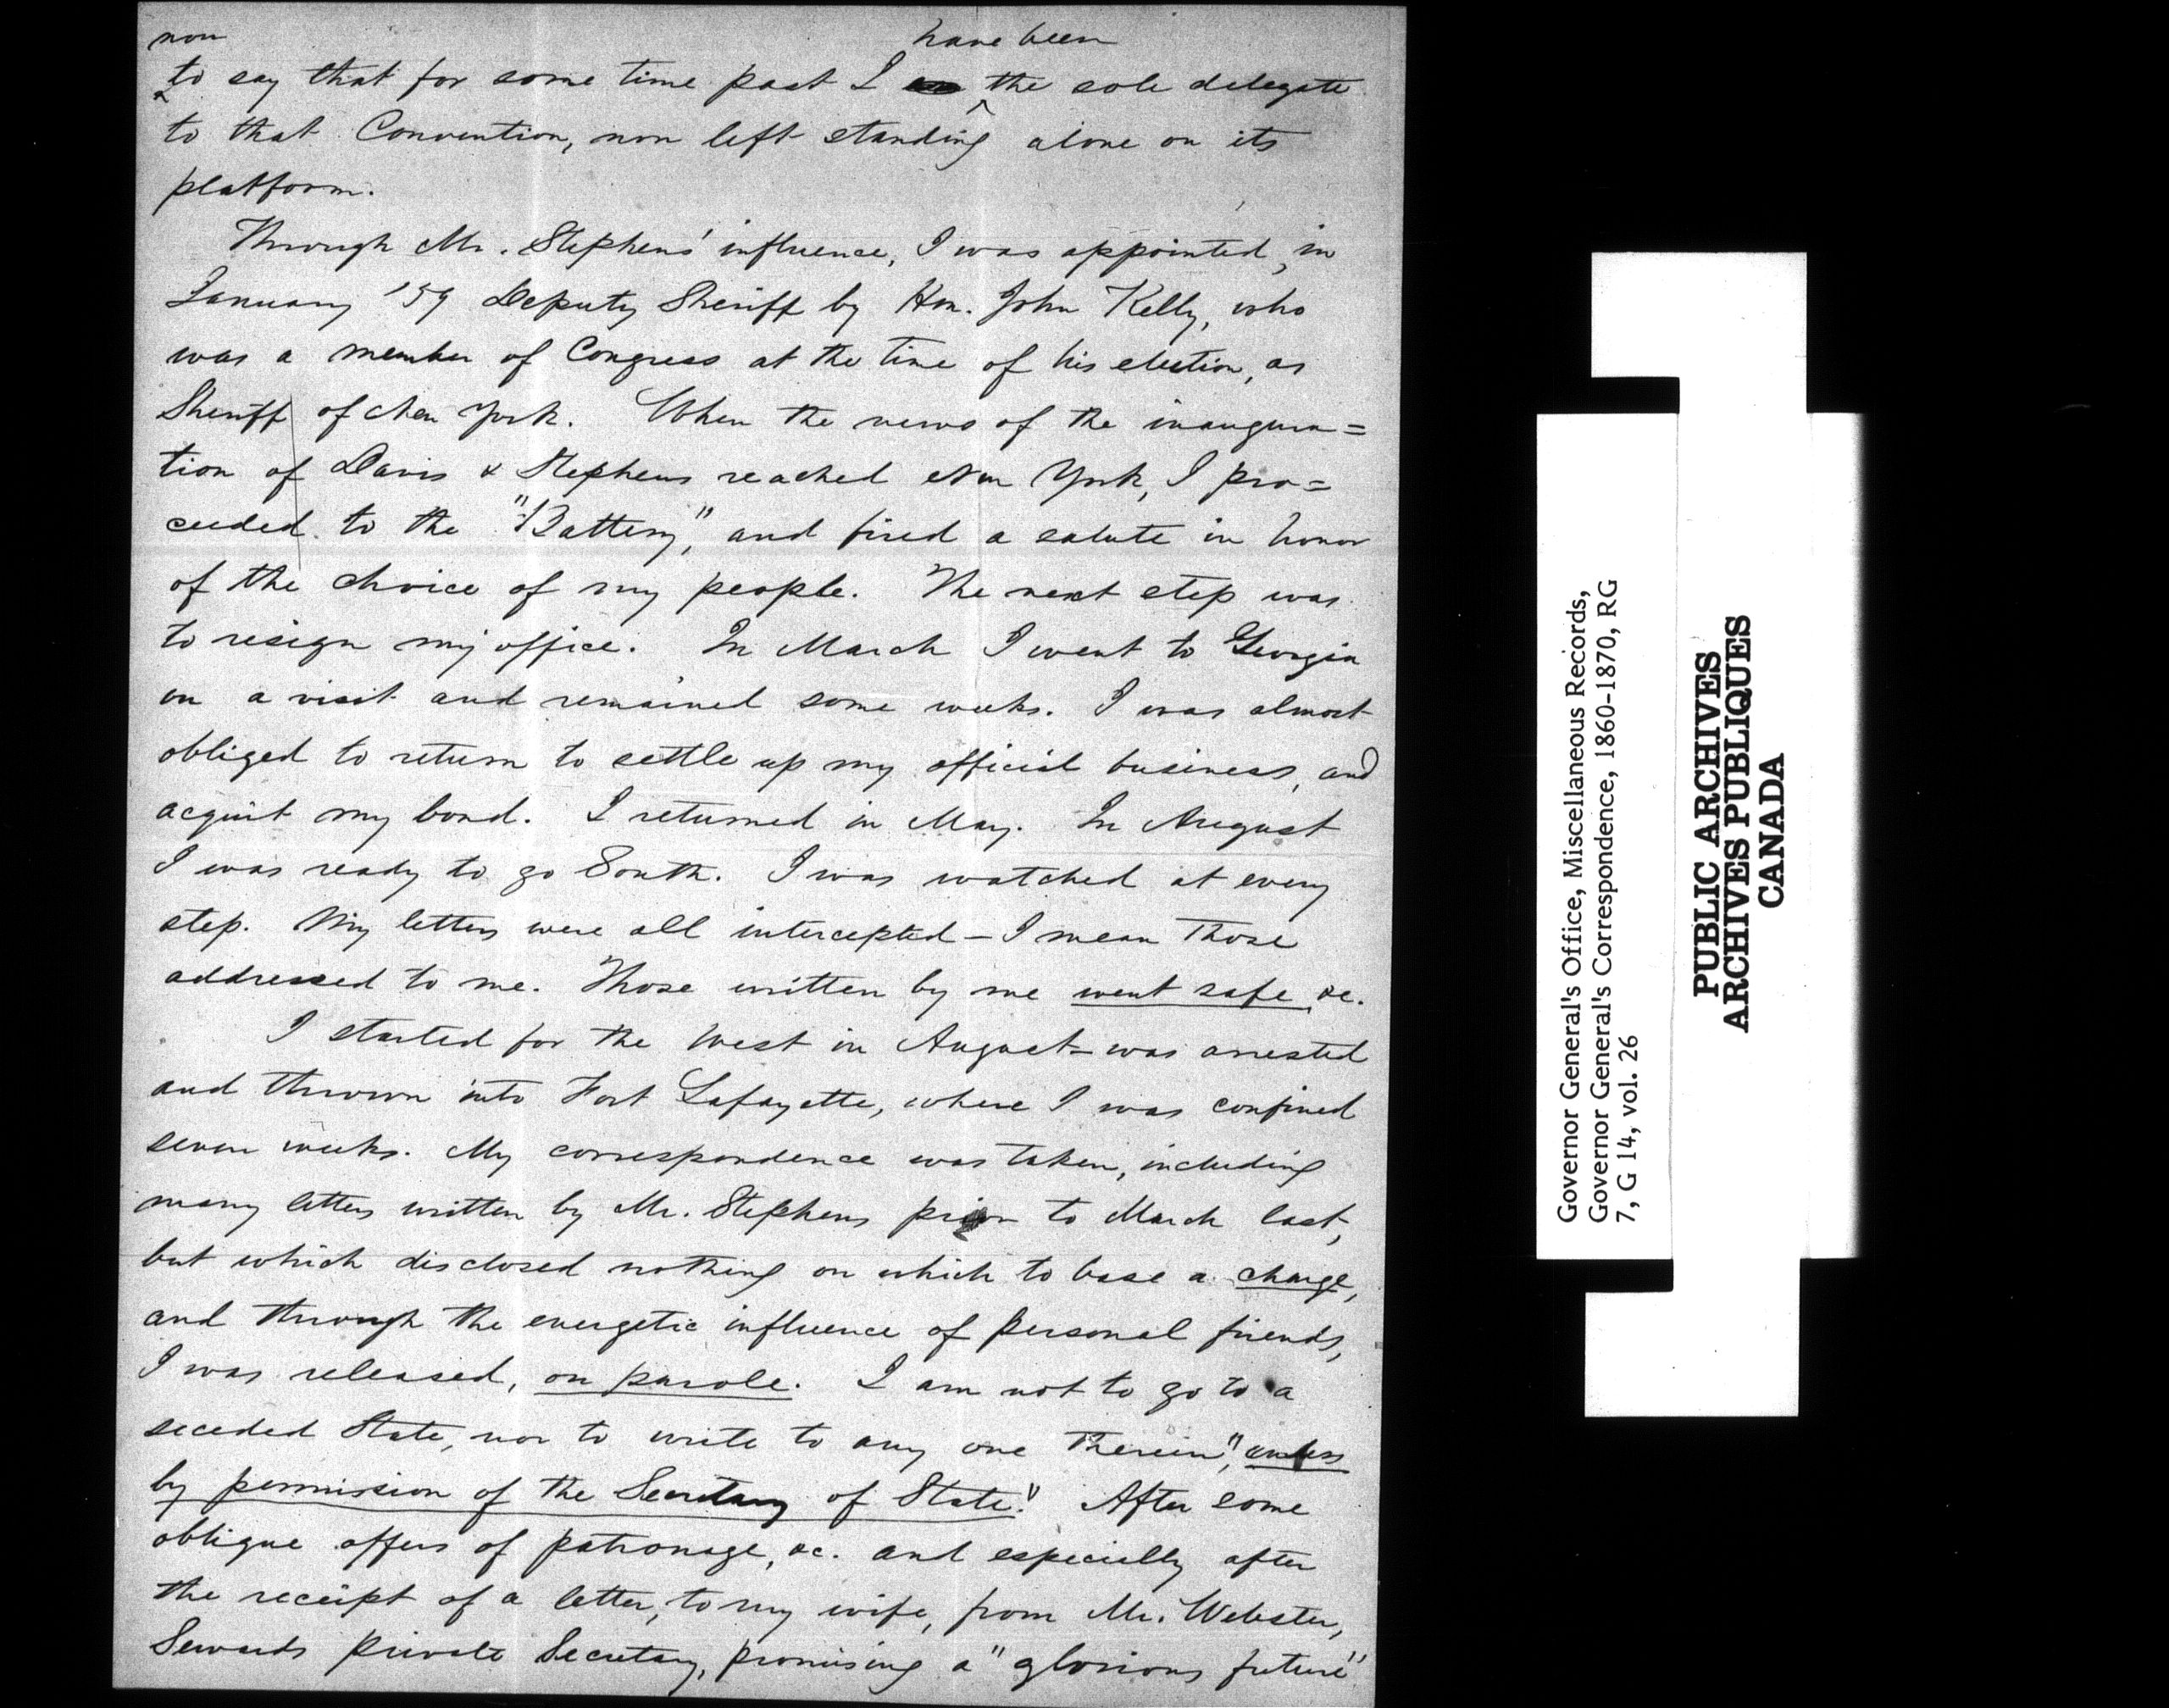 now have been
to say that for some time past I the sole delegate
to that Convention, now left standing alone on its
platform.
Through Mr. Stephens' influence, I was appointed, in
January '59 Deputy Sheriff by Hon. John Kelly, who
was a member of Congress at the time of his election, as
Sheriff of New York. When the news of the inaugura=
tion of Davis & Stephens reached New York, I pro=
ceeded to the "Battery," and fired a salute in honor
of the choice of my people. The next step was
to resign my office. In March I went to Georgia
on a visit and remained some weeks. I was almost
obliged to return to settle up my official business, and
acquit my bond. I returned in May. In August
I was ready to go South. I was watched at every
step. My letters were all intercepted – I mean those
addressed to me. Those written by me went safe, &c.
I started for the West in August – was arrested
and thrown into Fort Lafayette, where I was confined
seven weeks. My correspondence was taken, including
many letters written by Mr. Stephens prior to March last,
but which disclosed nothing on which to base a charge,
and through the energetic influence of personal friends,
I was released, on parole. I am not to go to a
seceded State, nor to write to any one therein, "unless
by permission of the Secretary of State." After some
oblique offers of patronage, &c. and especially after
the receipt of a letter, to my wife, from Mr. Webster,
Sewards private Secretary, promising a "glorious future"
Governor General's Office, Miscellaneous Records,
Governor General's Correspondence, 1860-1870, RG
7, G 14, vol. 26
PUBLIC ARCHIVES
ARCHIVES PUBLIQUES
CANADA